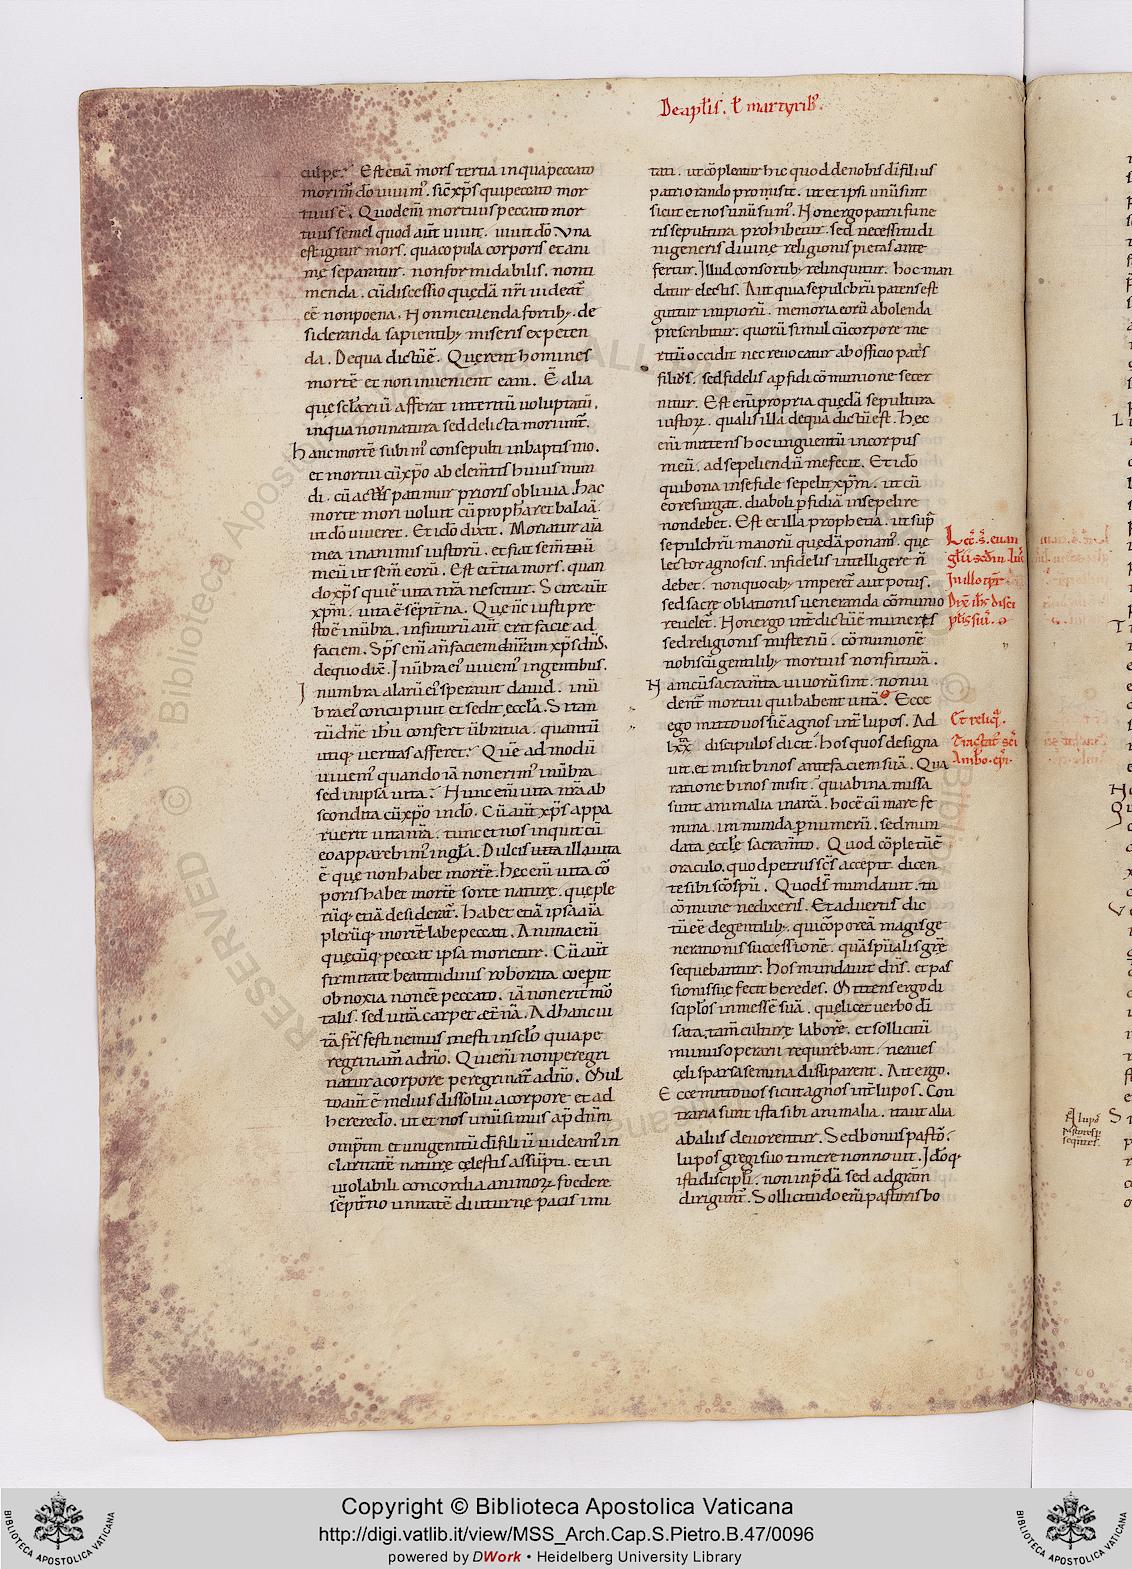 De aplis. ł martyrib;.
culpę. Est etiā mors tertia in qua peccato
morim᷒ do uiuim᷒. sic̄ xp̄s qui peccato mor
tuus ē. Quod em̄ mortuus peccato mor
tuus semel quod aut̄ uiuit. uiuit dō. Una
est igitur mors. qua copula corporis et ani
mę separatur. non formidabilis. non ti
menda. cū discessio quędā nr̄i uideat̄
eē non poena. Non metuenda fortib;. de
sideranda sapientib; miseris expeten
da. De qua dictū ē. Querent homines
mortē et non inuenient eam. Ē alia
que sclariū afferat interitū uoluptatū.
in qua non natura sed delicta moriunt̄.
hanc mortē subim᷒ consepulti in baptismo.
et mortui cū xp̄o ab elem̄tis huius mun
di. cū patimur prioris obliuia. hac
morte mori uoluit cū prophāret balaā.
ut dō uiueret. Et ideo dixit. Moriatur aīa
mea in animis iustorū. et fiat sem̄ tuū
meū ut sem̄ eorū. Est et tertia mors. quan
do xp̄s qui ē uita nr̄a nescitur. Scire aut̄
xp̄m. uita ē sēpit̄na. Que nc̄ iusti pre
sto ē in ūbra. in futurū aut̄ erit facie ad
faciem. Sp̄s em̄ an̄ faciem nr̄am xp̄s dn̄s.
de quo dixē. In ūbra ei᷒ uiuem᷒ in gentibus.
In umbra alarū ei᷒ sperauit dauid. in ū
bra ei᷒ concupiuit et sedit eccl̄a. Si tan
tū dn̄e ih̄u confert ūbra tua. quantū
utiq; ueritas afferet. Quē ad modū
uiuem᷒ quando iā non erim᷒ in ūbra
sed in ipsa uita. Nunc em̄ uita nr̄a ab
scondita cū xp̄o in dō. Cū aut̄ xp̄s appa
ruerit uita nr̄a. tunc et nos inquit cū
eo apparebim᷒ in gl̄a. Dulcis uita illa uita
ē que non habet mortē. hec em̄ uita cō
poris habet mortē sorte naturę. que ple
rūq; etiā desiderat̄. habet etiā ipsa aīa
plerūq; mortē labe peccati. Anima em̄
quęcūq; peccat ipsa morietur. Cū aut̄
firmitate beatitudinis roborata coeperit
obnoxia non eē peccato. iā non erit mo
talis. sed uitā carpet aet̄nā. Ad hanc ui
tā fr̄s festinemus mesti in sclo quia pe
regrinam᷒ a dn̄o. Qui em̄ non peregri
natur a corpore peregrinat̄ a dn̄o. Mul
to aut̄ ē melius dissolui a corpore et ad
herere dō. ut et nos unū simus ap̄ dn̄m
omp̄tm et unigenitū dī filiū uideam᷒ in
claritatē naturę cęlestis assūpti. et in
uiolabili concordia animoꝝ foedere
sēpit̄no unitatē diuturnę pacis imi
tati. ut cōpleatur hic quod de nobis dī filius
patri orando promisit. ut et ipsi unū sint
sicut et nos unū sum᷒. Non ergo patri fune
ris sepultura prohibetur. sed necessitudi
ni generis diuinę religionis pietas ante
fertur. Illud consortib; relinquitur. hoc man
datur electis. Aut quia sepulchrū patens est
guttur impiorū. memoria eorū abolenda
prescribitur. quorū simul cū corpore me
ritū occidit nec reuocatur ab officio patris
filius. sed fidelis a pfidi cōmunione secer
nitur. Est em̄ propria quędā sepultura
iustoꝝ. qualis illa de qua dictū est. hec
em̄ mittens hoc unguentū in corpus
meū. ad sepeliendū me fecit. Et ideo
qui bona in se fide sepelit xp̄m. ut cū
eo resurgat. diaboli pfidiā in se pelire
non debet. Est et illa prophetia. ut sup̄
sepulchrū maiorū quędā ponam᷒. que
lector agnoscit. infidelis intelligere n̄
debet. non quo cib; imperet̄ aut potus.
sed sacrę oblationis ueneranda cōmunio
reuelet̄. Non ergo int̄dictū ē muneris
sed religionis misteriū. cōmunionē
nobis cū gentilib; mortuis non futurā.
Nam cū sacram̄ta uiuorū sint. non ui
dent̄ mortui qui habent uitā. Ecce
ego mitto uos sic̄ agnos int̄ lupos. Ad
lxx discipulos dicit. hos quos designa
uit. et misit binos ante faciem suā. Qua
ratione binos misit. quia bina missa
sunt animalia in arcā. hoc ē cū mare fe
mina. immunda p numerū. sed mun
data eccłę sacram̄to. Quod cōpletū ē
oraculo. quod petrus sc̄s accepit dicen
te sibi sc̄o sp̄u. Quod dś mundauit. tu
cōmune ne dixeris. Et aduertis dic
tū eē de gentilib; qui cōporeā magis ge
nerationis successionē. quā sp̄ualis gr̄ę
sequebantur. hos mundauit dn̄s. et pas
sionis suę fecit heredes. Mittens ergo di
scipłos in messē suā. que licet uerbo dī
sata. tam̄ culturę laborē. et sollicitū
munus operarii requirebant. ne aues
cęli sparsa semina dissiparent. Ait ergo.
Ecce mitto uos sicut agnos int̄ lupos. Con
traria sunt ista sibi animalia. ita ut alia
ab aliis deuorentur. Sed bonus pastor.
lupos gregi suo timere non nouit. Ideoq;
isti discipli. non in p̄dā. sed ad gr̄am
dirigunt̄. Sollicitudo em̄ pastoris bo
Lec̄. s̄. euan
glii scdm̄. luc̄
In illo tpr̄
Dix̄ ihs disci
plis suis.
Et reliq᷒.
Tractat᷒ sc̄i
Ambō. ep̄i.
Copyright © Biblioteca Apostolica Vaticana
http://digi.vatlib.it/view/MSS_Arch.Cap.S.Pietro.B.47/0096
powered by DWork • Heidelberg University Library
BIBLIOTECA APOSTOLICA VATICANA
BIBLIOTECA APOSTOLICA VATICANA